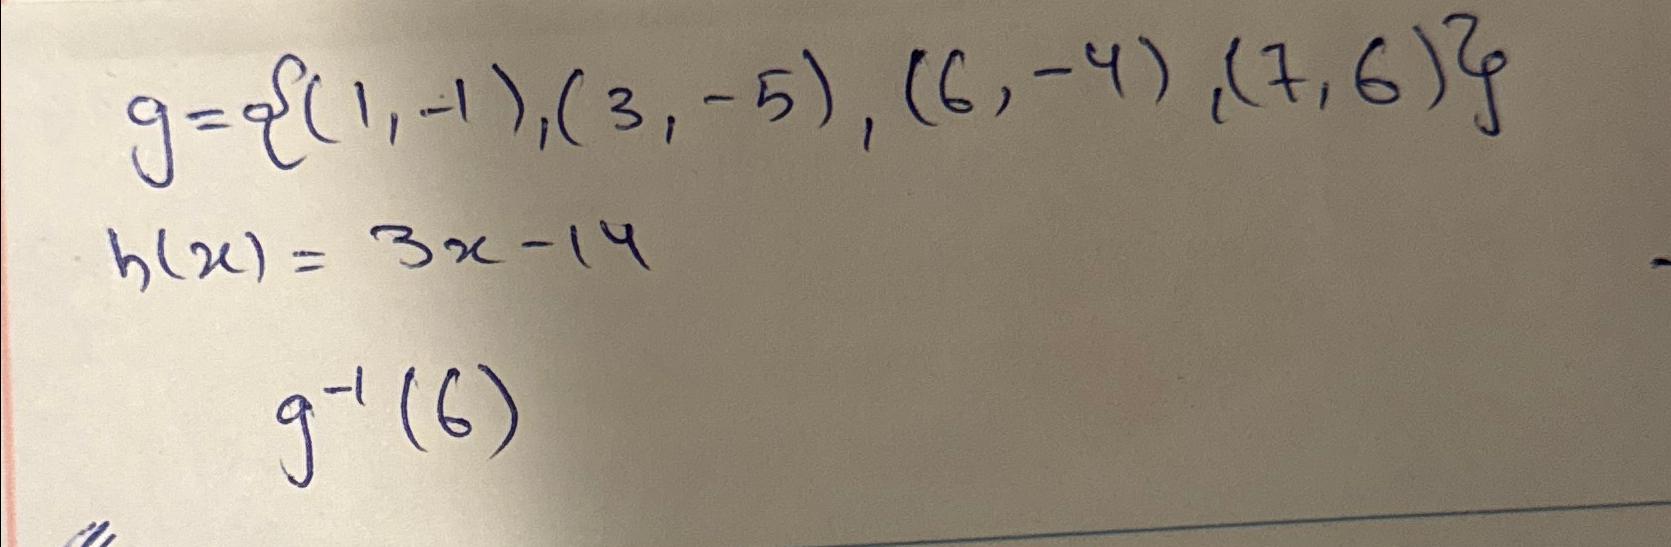 g={(1,-1),(3,-5),(6,-4),(7,6)}
h(x)= 3x-14
g⁻¹(6)